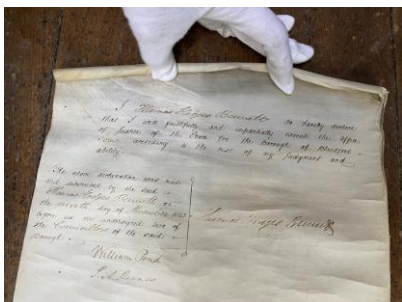 I Thomas Hodges Bennett do hereby declare
that I will faithfully and impartially execute the Office
of Justice of the Peace for the Borough of
according to the best of my Judgment and
ability.
The above declaration was made
and subscribed by the said
Thomas Hodges Bennett on
the day of
before us the undersigned two of
the Councillors of the said
Borough.
Thomas Hodges Bennett
William Pond